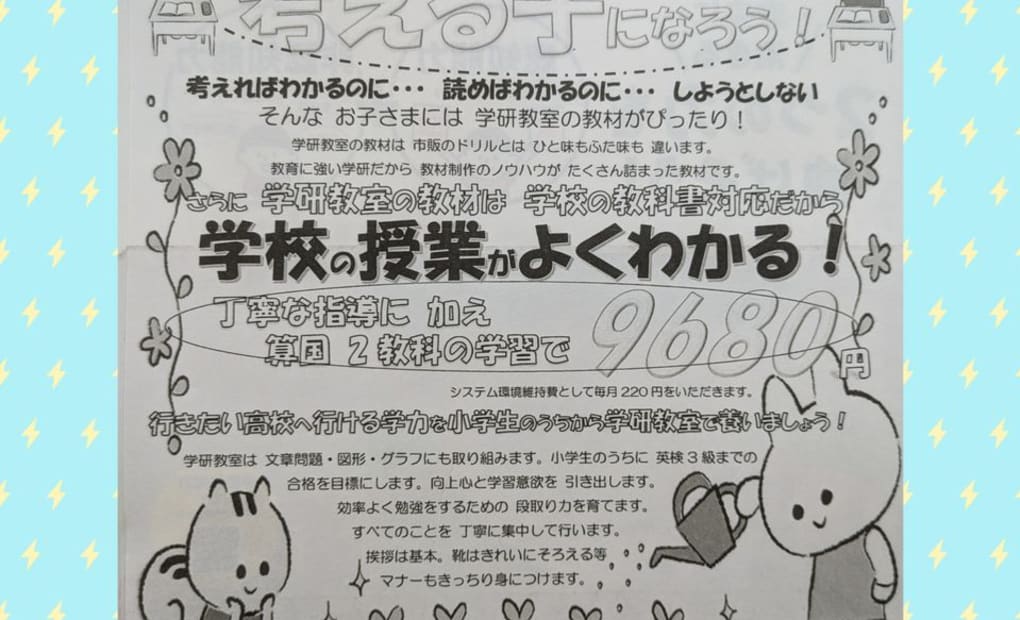 考える子になろう！
考えればわかるのに・・・ 読めばわかるのに・・・ しようとしない
そんな お子さまには 学研教室の教材がぴったり！
学研教室の教材は 市販のドリルとは ひと味もふた味も 違います。
教育に強い学研だから 教材制作のノウハウが たくさん詰まった教材です。
さらに 学研教室の教材は 学校の教科書対応だから
学校の授業がよくわかる！
丁寧な指導に 加え
算国 2教科の学習で 9680円
システム環境維持費として毎月220円をいただきます。
行きたい高校へ行ける学力を小学生のうちから学研教室で養いましょう！
学研教室は 文章問題・図形・グラフにも取り組みます。小学生のうちに 英検3級までの
合格を目標にします。向上心と学習意欲を 引き出します。
効率よく勉強をするための 段取り力を育てます。
すべてのことを 丁寧に集中して行います。
挨拶は基本。靴はきれいにそろえる等
マナーもきっちり身につけます。